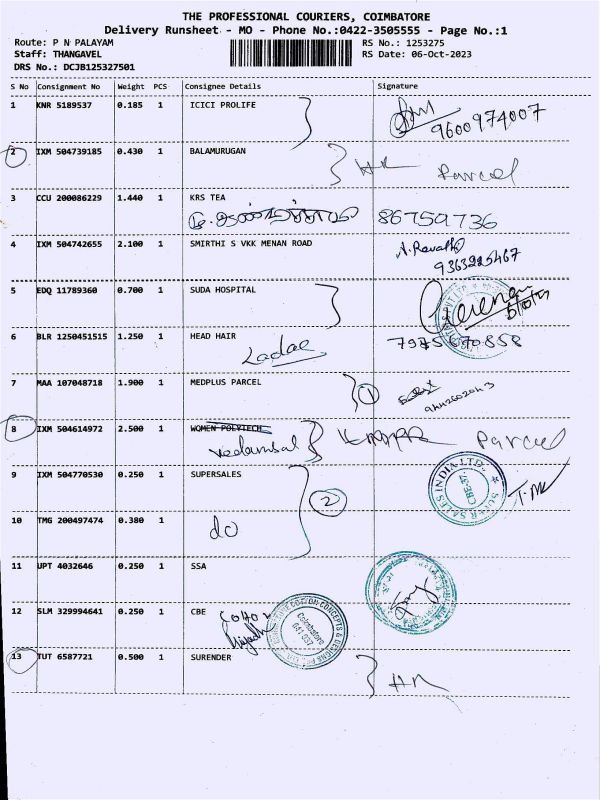 THE PROFESSIONAL COURIERS, COIMBATORE
Delivery Runsheet - MO - Phone No.:0422-3505555 - Page No.:1
Route: P N PALAYAM RS No.: 1253275
Staff: THANGAVEL RS Date: 06-Oct-2023
DRS No.: DCJB125327501
S No Consignment No Weight PCS Consignee Details Signature
1 KNR 5189537 0.185 1 ICICI PROLIFE
9600974007
2 IXM 504739185 0.430 1 BALAMURUGAN
Parcel
3 CCU 200086229 1.440 1 KRS TEA
86759736
4 IXM 504742655 2.100 1 SMIRTHI S VKK MENAN ROAD
A. Revathi
9363225467
5 EDQ 11789360 0.700 1 SUDA HOSPITAL
6 BLR 1250451515 1.250 1 HEAD HAIR
Ladae 7975670858
7 MAA 107048718 1.900 1 MEDPLUS PARCEL 1
8 IXM 504614972 2.500 1 WOMEN POLYTECH
Parcel
9 IXM 504770530 0.250 1 SUPERSALES
SUPER SALES INDIA LTD.
CBE-37
2
10 TMG 200497474 0.380 1
do
11 UPT 4032646 0.250 1 SSA
12 SLM 329994641 0.250 1 CBE
Coimbatore
641 037
13 TUT 6587721 0.500 1 SURENDER